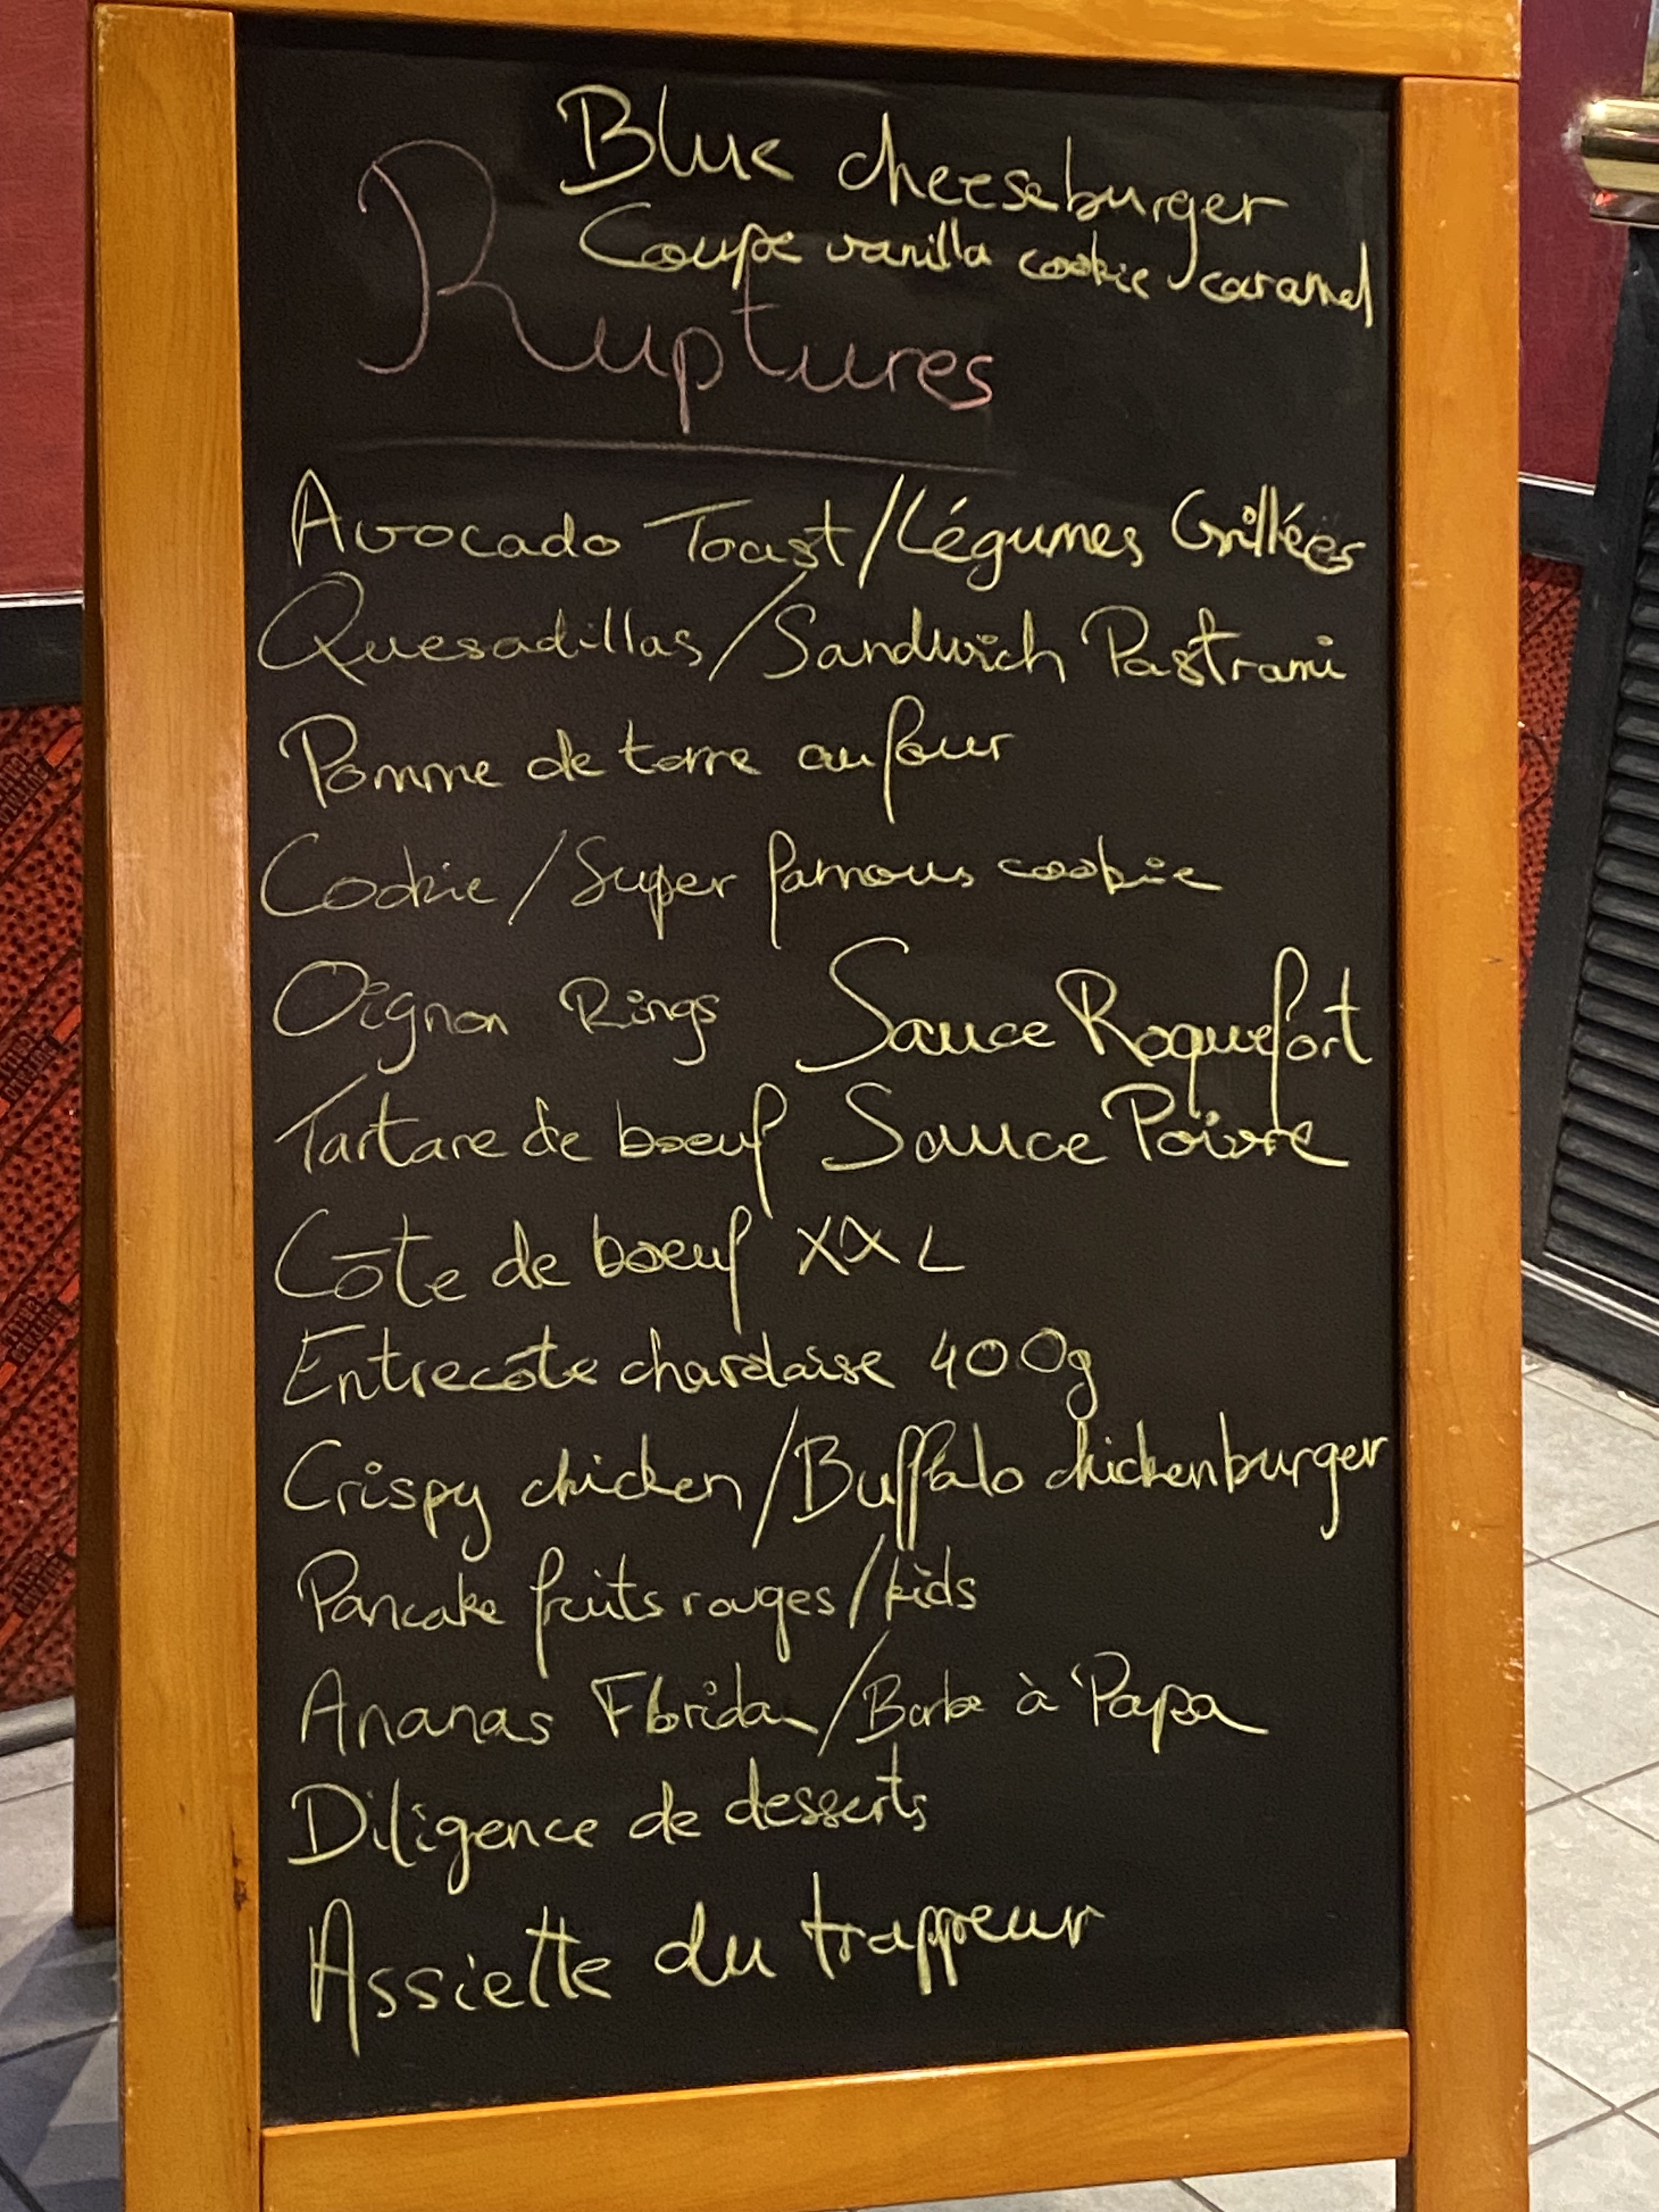 Blue cheeseburger
Coupe vanilla cookie caramel
Ruptures
Avocado Toast/Légumes Grillées
Quesadillas/Sandwich Pastrami
Pomme de terre au four
Cookie/Super famous cookie
Oignon Rings Sauce Roquefort
Tartare de boeuf Sauce Poivre
Côte de boeuf XXL
Entrecôte chardaise 400g
Crispy chicken/Buffalo chickenburger
Pancake fruits rouges/kids
Ananas Florida/Barbe à Papa
Diligence de desserts
Assiette du trappeur